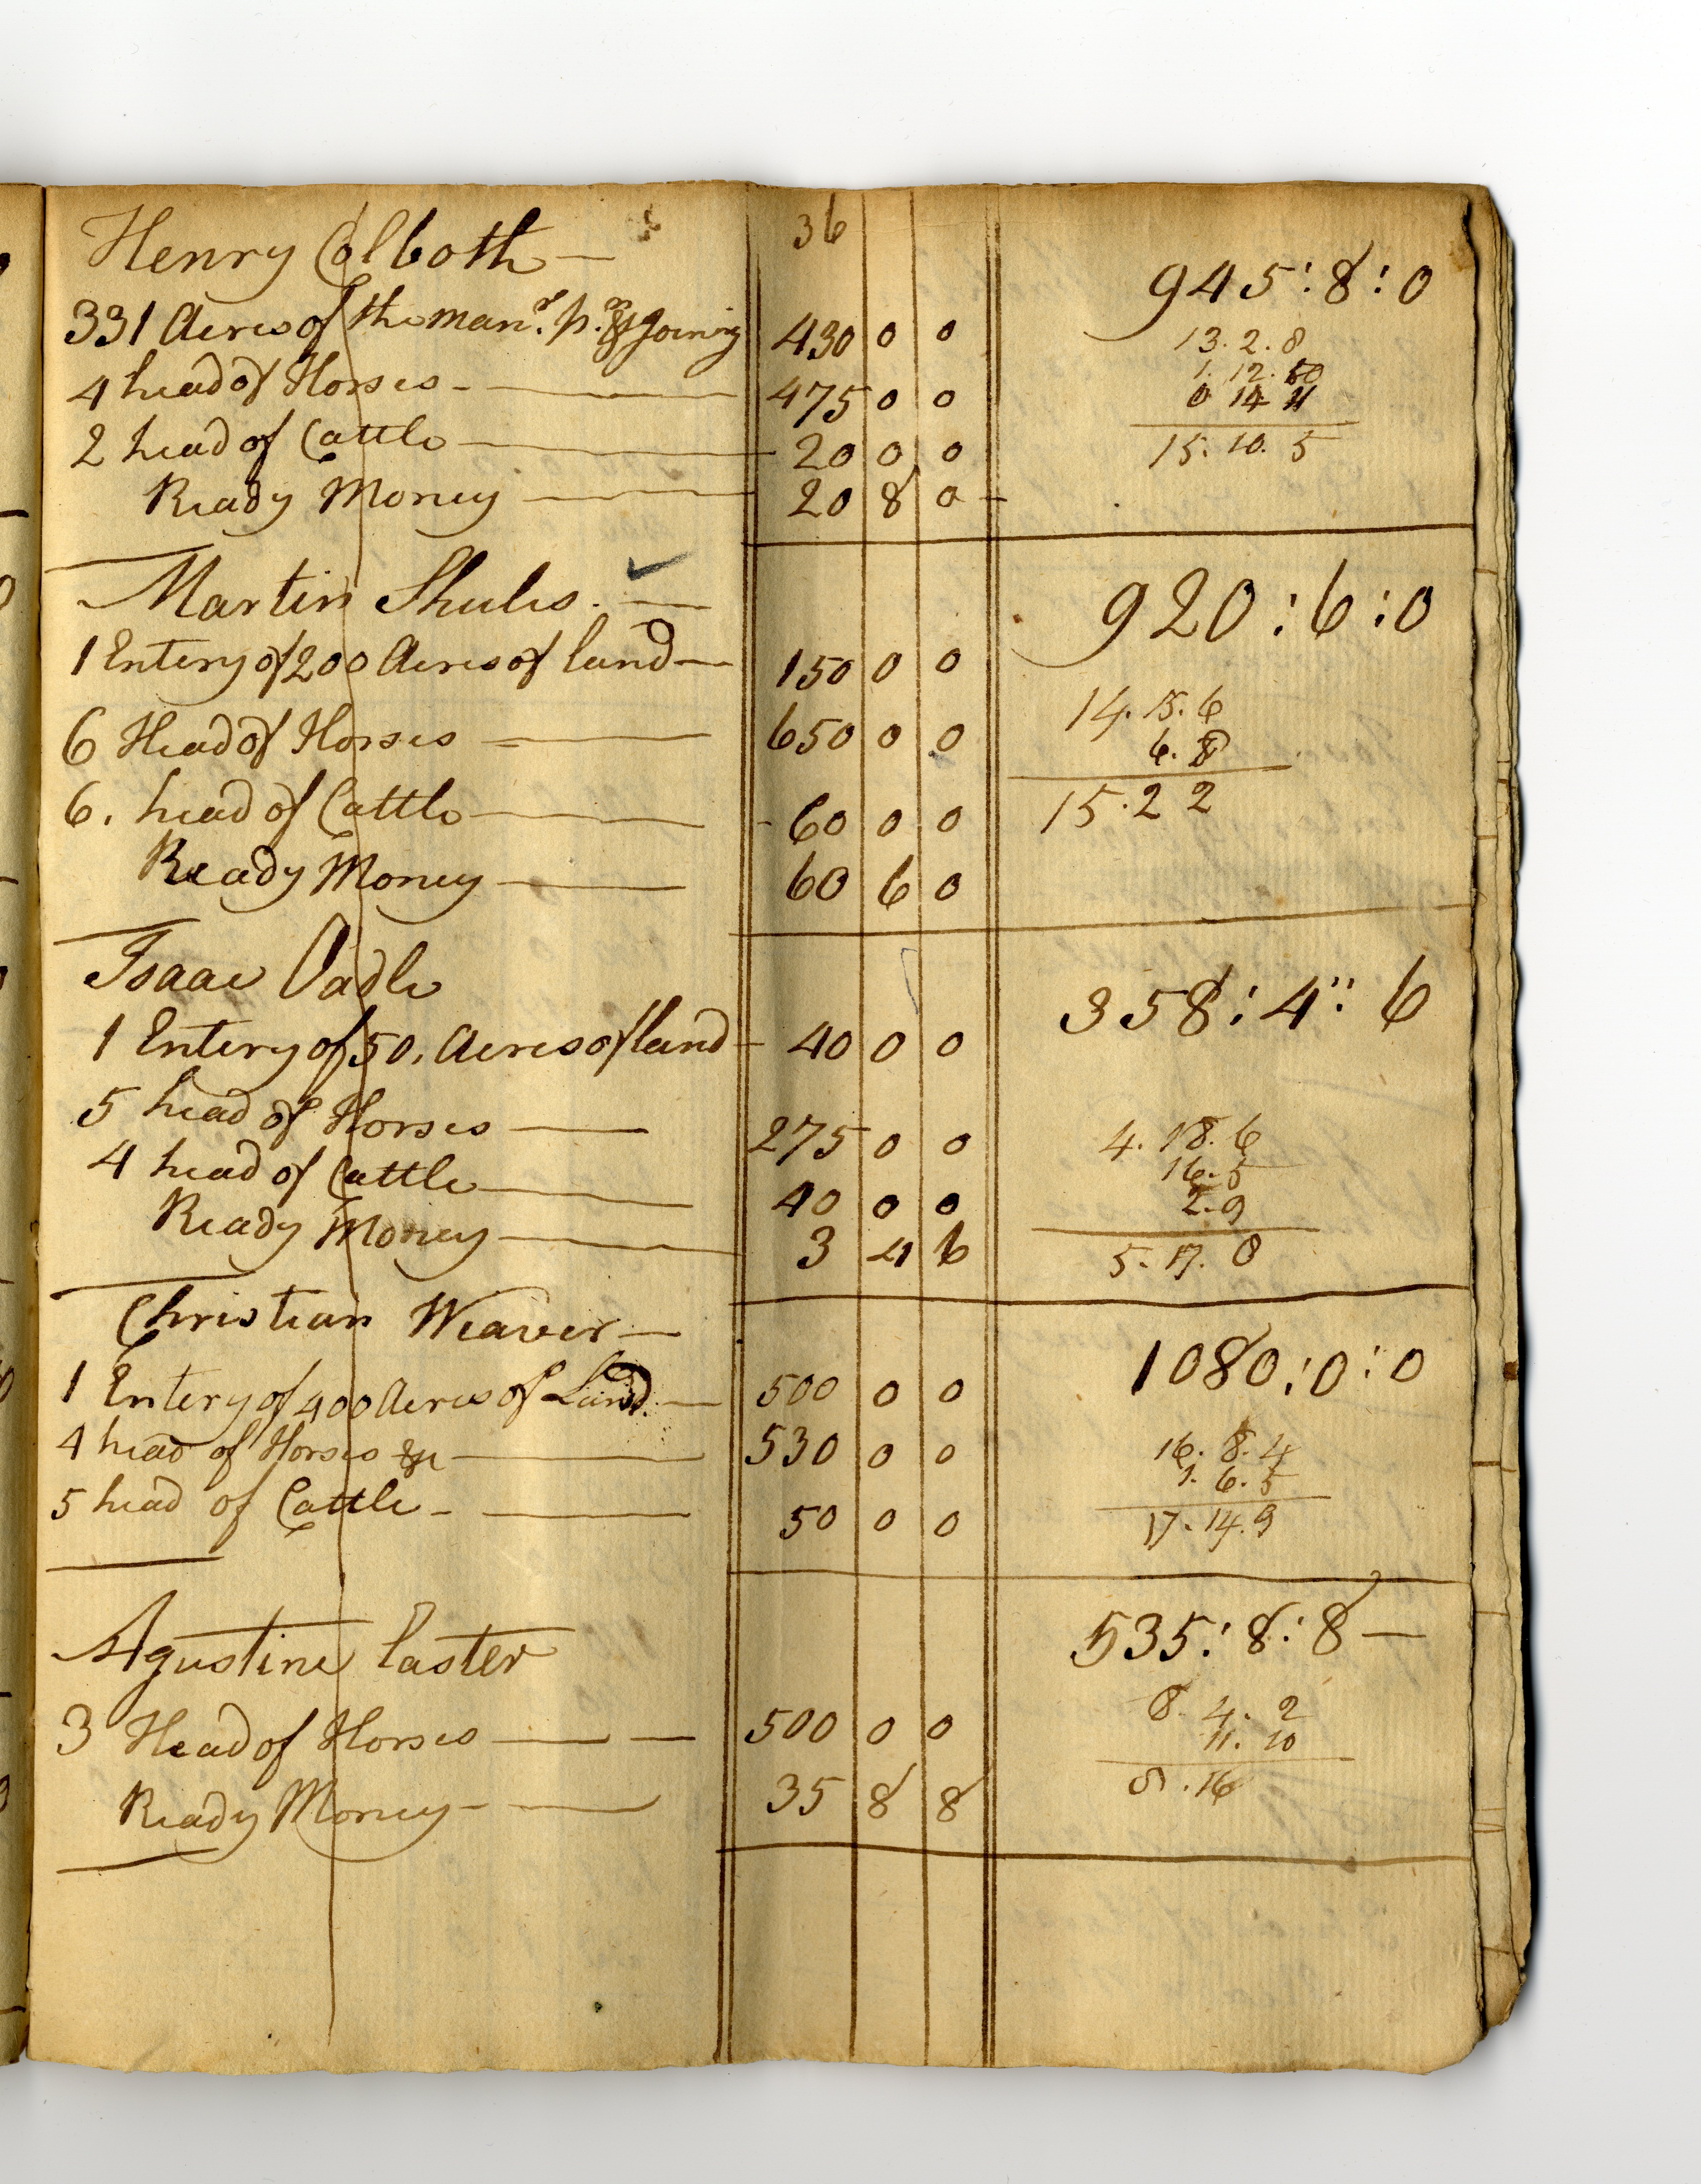 36
Henry Colboth — 945:8:0
331 Acres of the man.r p. &joining 430 0 0 13. 2. 8
4 head of Horses - — 475 0 0 1. 12.
2 head of Cattle — 20 0 0 0 14 11
Ready Money — 20 8 0 - 15. 10. 5
Martin Shules. — 920:6:0
1 Entery of 200 Acres of land — 150 0 0
6 Head of Horses — 650 0 0 14. 15. 6
6. 8
6. head of Cattle — 60 0 0 15. 2 2
Ready Money — 60 6 0
Isaac Oadle 358:4:6
1 Entery of 50. Acres of land - 40 0 0
5 head of Horses — 275 0 0 4. 18. 6
4 head of Cattle — 40 0 0 16. 5
2. 9
Ready Money — 3 4 6 5. 17. 8
Christian Weaver — 1080:0:0
1 Entery of 400 Acres of Land — 500 0 0
4 head of Horses — 530 0 0 16. 8. 4
1. 6. 5
5 head of Cattle - — 50 0 0 17. 14. 9
Agustine Caster 535:8:8 —
3 Head of Horses — — 500 0 0 8. 4. 2
11. 10
Ready Money - — 35 8 8 8. 16